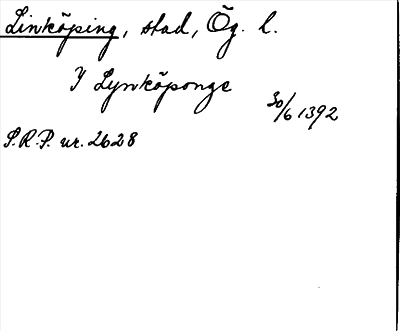 Linköping, stad, Ög. l.
Y Lynköponge
30/6 1392
S.R.P. nr. 2628